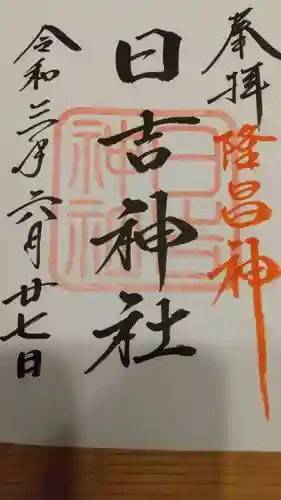 奉拝
隆昌神
日吉神社
日吉神社
令和三年六月廿七日